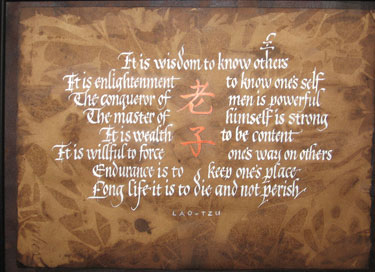 It is wisdom to know others
It is enlightenment to know one's self
The conqueror of men is powerful
The master of himself is strong
It is wealth to be content
It is willful to force one's way on others
Endurance is to keep one's place
Long life it is to die and not perish
老子
LAO-TZU